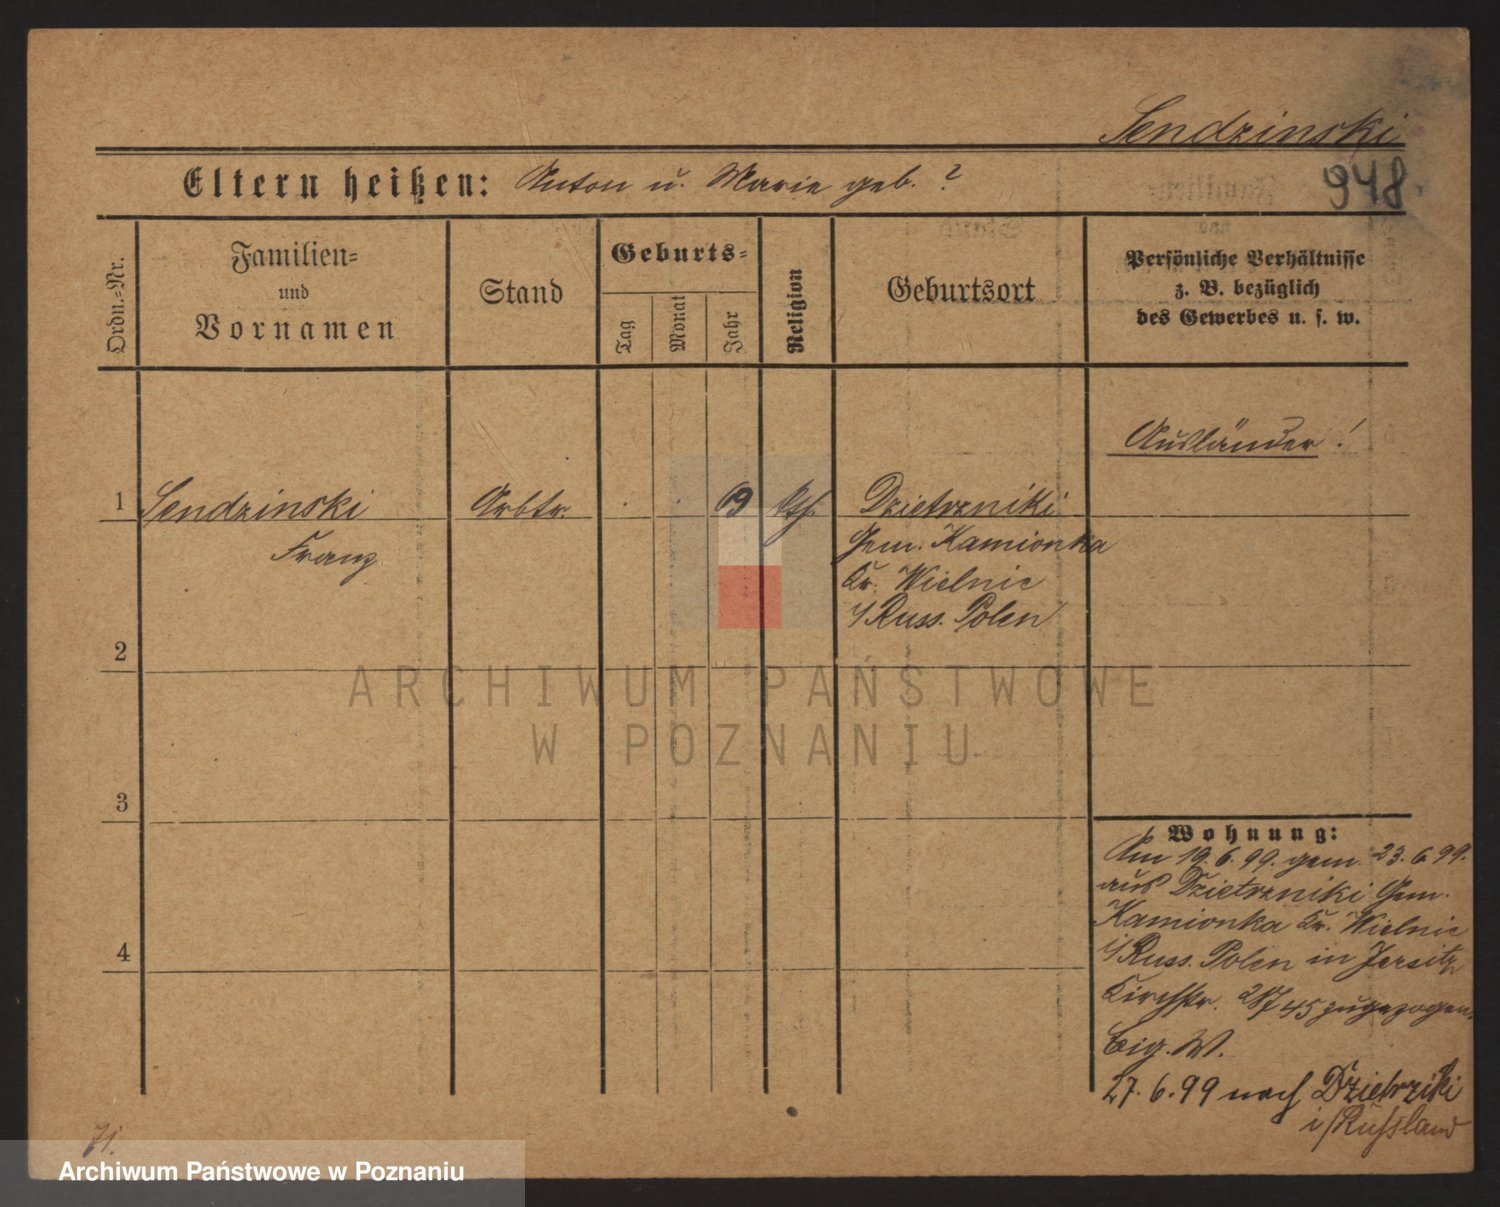 Sendzinski
Eltern heißen: Anton u. Marie geb. ?
948
Ordn.=Nr.
Familien=
und
Vornamen
Stand
Geburts=
Tag
Monat
Jahr
Religion
Geburtsort
Persönliche Verhältnisse
z. B. bezüglich
des Gewerbes u. s. w.
Ausländer!
1 Sendzinski Arbtr. Kth. Dzietrzniki
Franz
Gem. Kamionka
Kr. Wielnic
i/Russ. Polen
2
3
4
Wohnung:
Am 19.6.99. gem. 23.6.99.
aus Dzietrzniki Gem.
Kamionka Kr. Wielnic
i/Russ. Polen in Jersitz
Kirchstr. 45 zugezogen.
Eig. W.
27.6.99 nach Dzietrziki
i/Russland
71.
ARCHIWUM PAŃSTWOWE
W POZNANIU
Archiwum Państwowe w Poznaniu